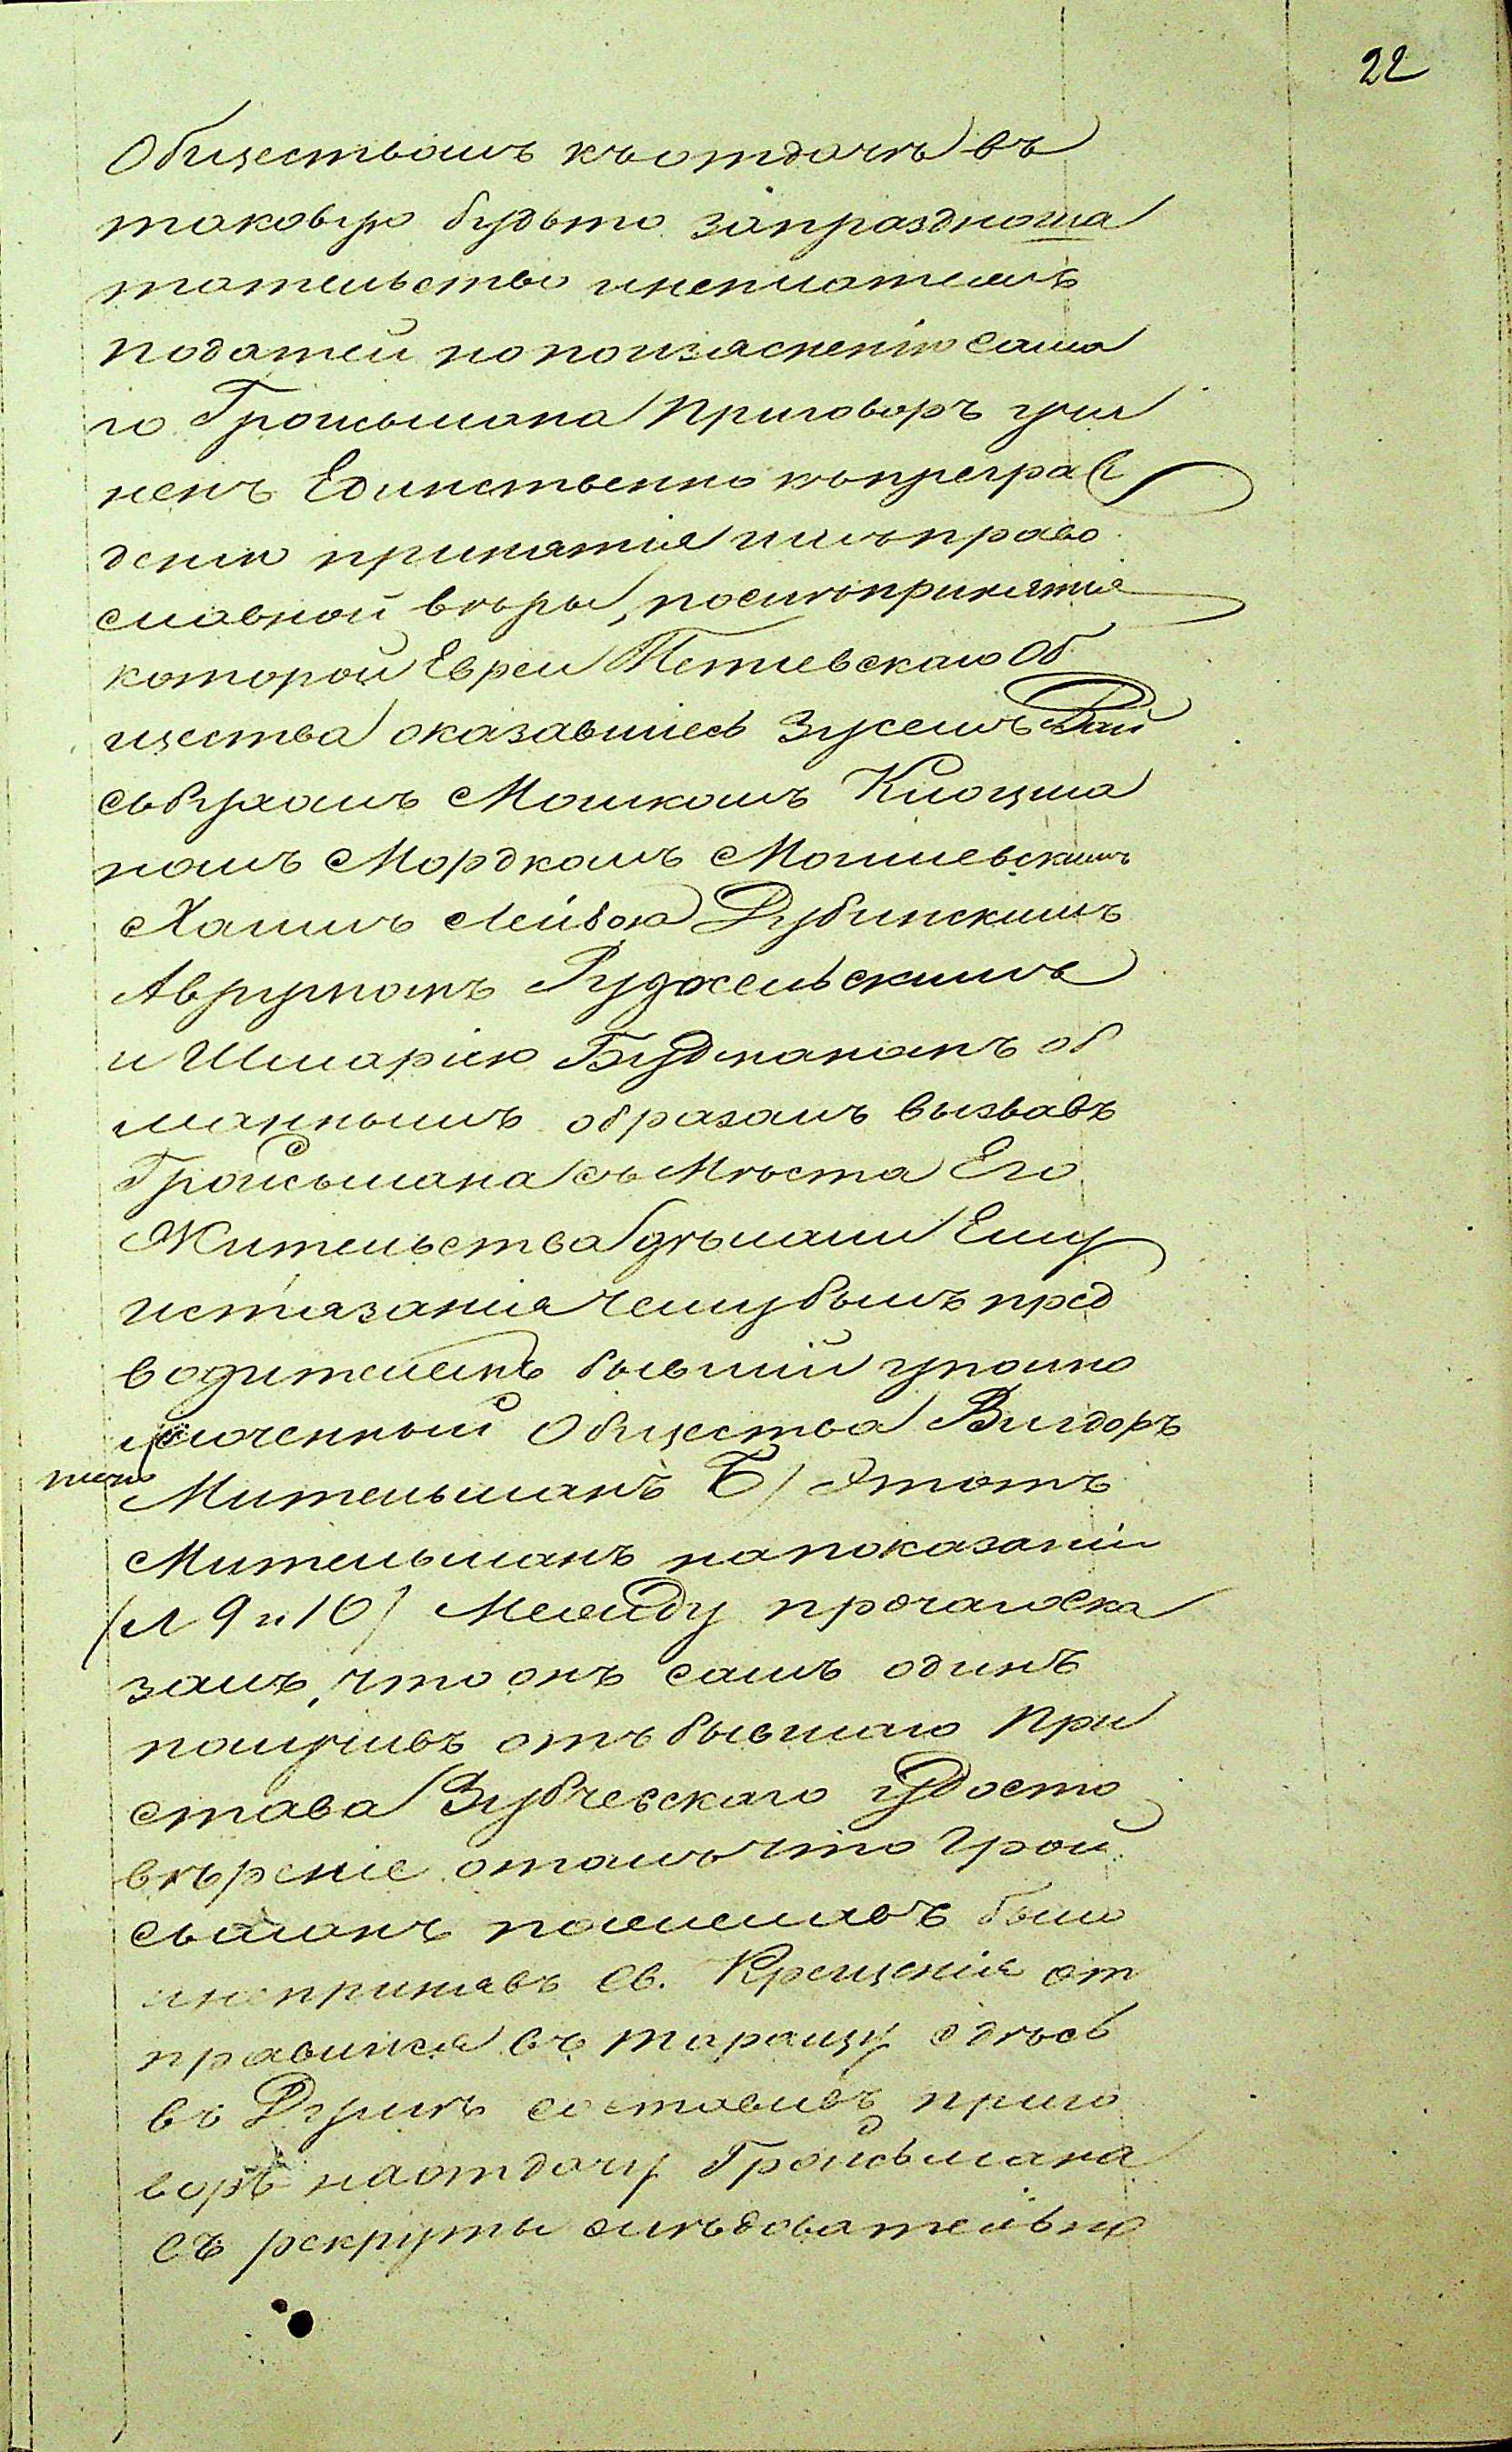 22
Обществомъ къ отдачѣ въ
таковую будьто запраздноша
тательство инеплатежъ
податей но поизясненію Сама
го Гройсьмана Приговоръ учи
ненъ Единственно къ преграж
денію принятія имъ право
славной вѣры, посиѣ принятія
которой Евреи Тетіевскаго Об
щества оказавшіесь Зуселъ Рай
сбухомъ Мошкомъ Клоцма
номъ Мордкомъ Могилевскимъ
Хаимъ Лейбою Дубинскимъ
Аврумомъ Рудосельскимъ
и Шмаріею Будманомъ об
маннымъ образомъ вызвавъ
Гройсьмана съ Мѣста Его
Жительства дѣлали Ему
истязанія чему былъ пред
водителемъ бывшій уполно
моченный Общества Вигдоръ
Мительманъ Б) Этотъ
Мительманъ на показаніи
(л 9 и 10) Между прочимъ ска
залъ, что онъ самъ одинъ
получивъ отъ бывшаго При
става Зубчевскаго Удосто
вѣреніе о томъ что Грой
сьманъ пожелавъ было
и непринявъ Св. Крещенія от
правился въ Таращу здѣсь
въ Думѣ составивъ приго
воръ на отдачу Гройсьмана
въ рекруты слѣдовательно